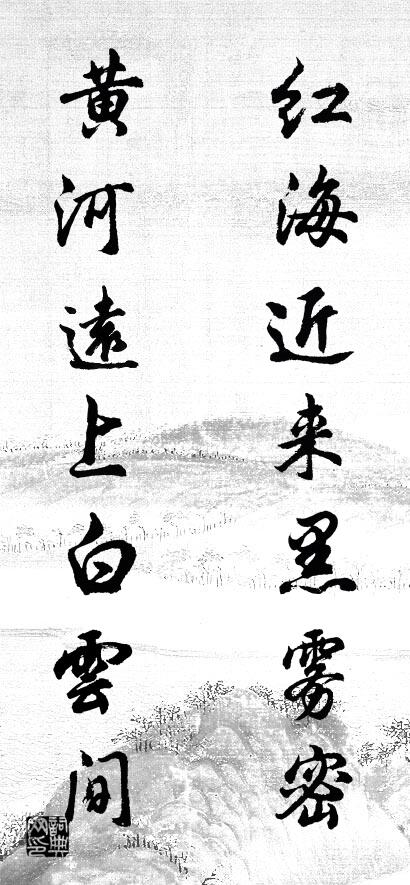 红海近来黑雾密
黄河遠上白雲间